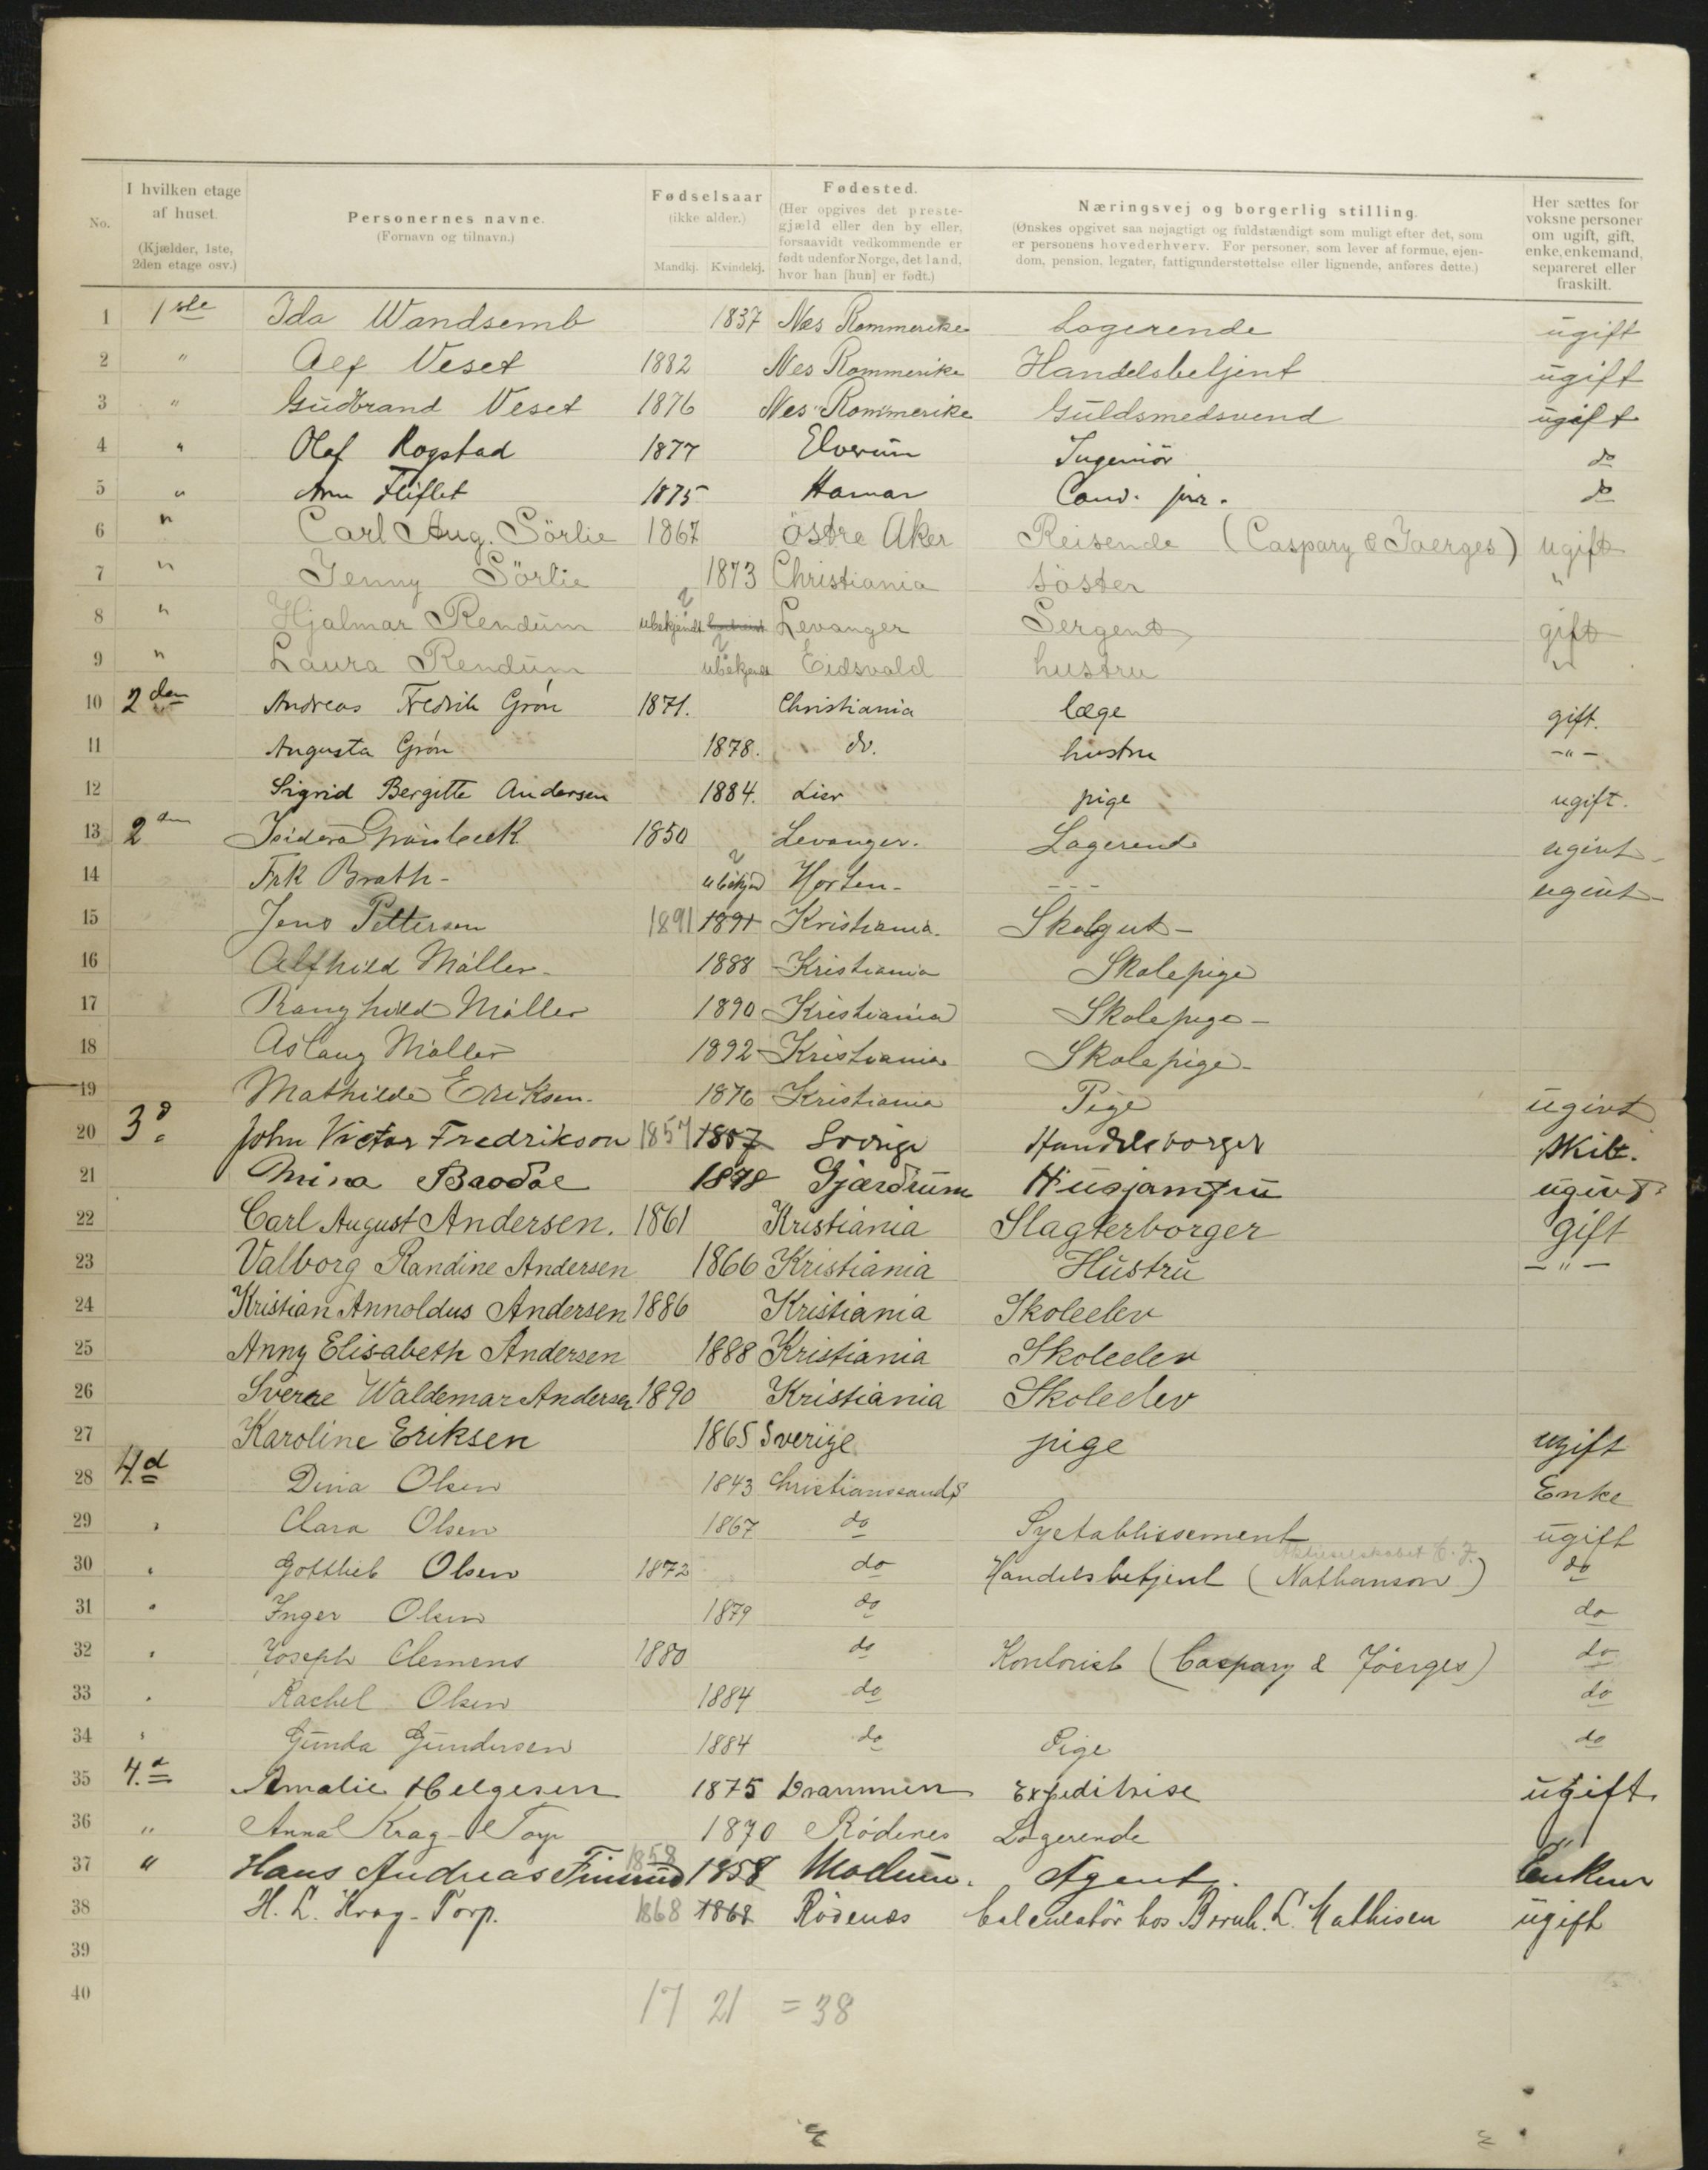 No. I hvilken etage af huset. (Kjælder, 1ste, 2den etage osv.) Personernes navne. (Fornavn og tilnavn.) Fødselsaar (ikke alder.) Mandkj. Kvindekj. Fødested. (Her opgives det prestegjæld eller den by eller, forsaavidt vedkommende er født udenfor Norge, det land, hvor han [hun] er født.) Næringsvej og borgerlig stilling. (Ønskes opgivet saa nøjagtigt og fuldstændigt som muligt efter det, som er personens hovederhverv. For personer, som lever af formue, ejendom, pension, legater, fattigunderstøttelse eller lignende, anføres dette.) Her sættes for voksne personer om ugift, gift, enke, enkemand, separeret eller fraskilt.
1 1ste Ida Wandsemb 1837 Nes Rommerike Logerende ugift
2 " Alf Veset 1882 Nes Rommerike Handelsbetjent ugift
3 " Gudbrand Veset 1876 Nes Rommerike Guldsmedsvend ugift
4 " Olaf Rogstad 1877 Elverum Ingeniör do
5 " Fliflet 1875 Hamar Cand. jur. do
6 " Carl Aug. Sörlie 1867 östre Aker Reisende (Caspary & Joerges) ugift
7 " Jenny Sörlie 1873 Christiania söster "
8 " Hjalmar Rendum ubekjendt Levanger Sergent gift
9 " Laura Rendum ubekjendt Eidsvold hustru "
10 2den Andreas Fredrik Grøn 1871. Christiania læge gift.
11 Augusta Grøn 1878. do. hustru -"-
12 Sigrid Bergitte Andersen 1884. Lier pige ugift.
13 2den Isidora 1850 Levanger. Logerende ugivt-
14 Frk Brath- ubekjend Horten- --- ugivt-
15 Jens Pettersen 1891 1891 Kristiania. Skolgut-
16 Alfhild Møller- 1888 Kristiania Skolepige
17 Ranghild Møller 1890 Kristiania Skolepige-
18 Aslaug Møller 1892 Kristiania Skolepige-
19 Mathilde Eriksen- 1876 Kristiania Pige ugivt
20 3d John Victor Fredrikson 1857 1857 Sverige Handelsborger skilt.
21 Mina 1878 Gjærdrum Husjomfru ugivt
22 Carl August Andersen. 1861 Kristiania Slagterborger gift
23 Valborg Randine Andersen 1866 Kristiania Hustru -"-
24 Kristian Annoldus Andersen 1886 Kristiania Skoleelev
25 Anny Elisabeth Andersen 1888 Kristiania Skoleelev
26 Sverre Waldemar Andersen 1890 Kristiania Skoleelev
27 Karoline Eriksen 1865 Sverige pige ugift
28 4.d Dina Olsen 1843 Christianssands Enke
29 " Clara Olsen 1867 do Syetablissement ugift
Aktieselskabet
30 " Gottlieb Olsen 1872 do Handelsbetjent (Nathanson) do
31 " Inger Olsen 1879 do do
32 " Joseph Clemens 1880 do Kontorist (Caspary & Jöerges) do
33 " Rachel Olsen 1884 do do
34 " Gunda Gundersen 1884 do Pige do
35 4.d Amalie Helgesen 1875 Drammen Expeditrise ugift.
36 " Anna Krag-Torp 1870 Rödenes Logerende "
37 " Hans Andreas 1858 1858 Modum. Agent.
38 H. L. Krag-Torp. 1868 1868 Rödenes Calculatör hos Bernh. L. Mathisen ugift
39
40 17 21 = 38